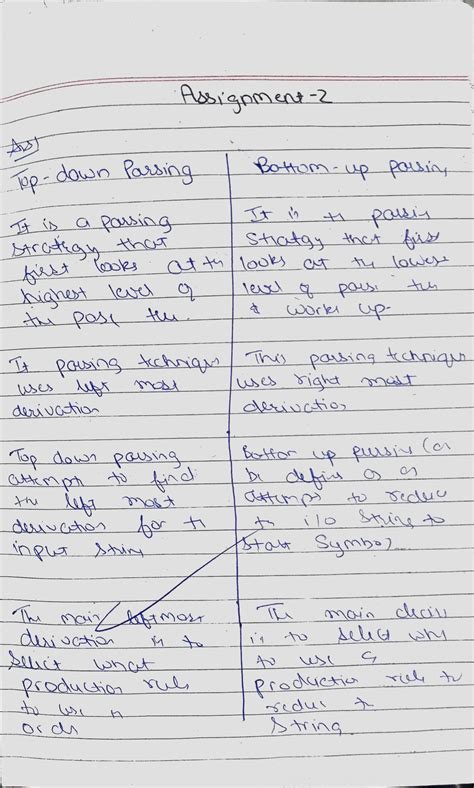 Assignment-2
Ans)
Top-down Parsing
It is a parsing
strategy that
first looks at th
highest level of
the pase tree.
It parsing technique
uses left most
derivation
Top down parsing
attempt to find
the left most
derivation for th
input string
The main leftmost
derivation is to
select what
production rule
to use in
order
Bottom-up parsing
It is th parsing
Strategy that first
looks at the lowest
level of parse tree
& works up.
This parsing technique
uses right most
derivation
Bottom up parsing can
be define as an
attempt to reduce
th i/p string to
start symbol
The main decisi
is to select whe
to use a
production rule to
reduce th
string.